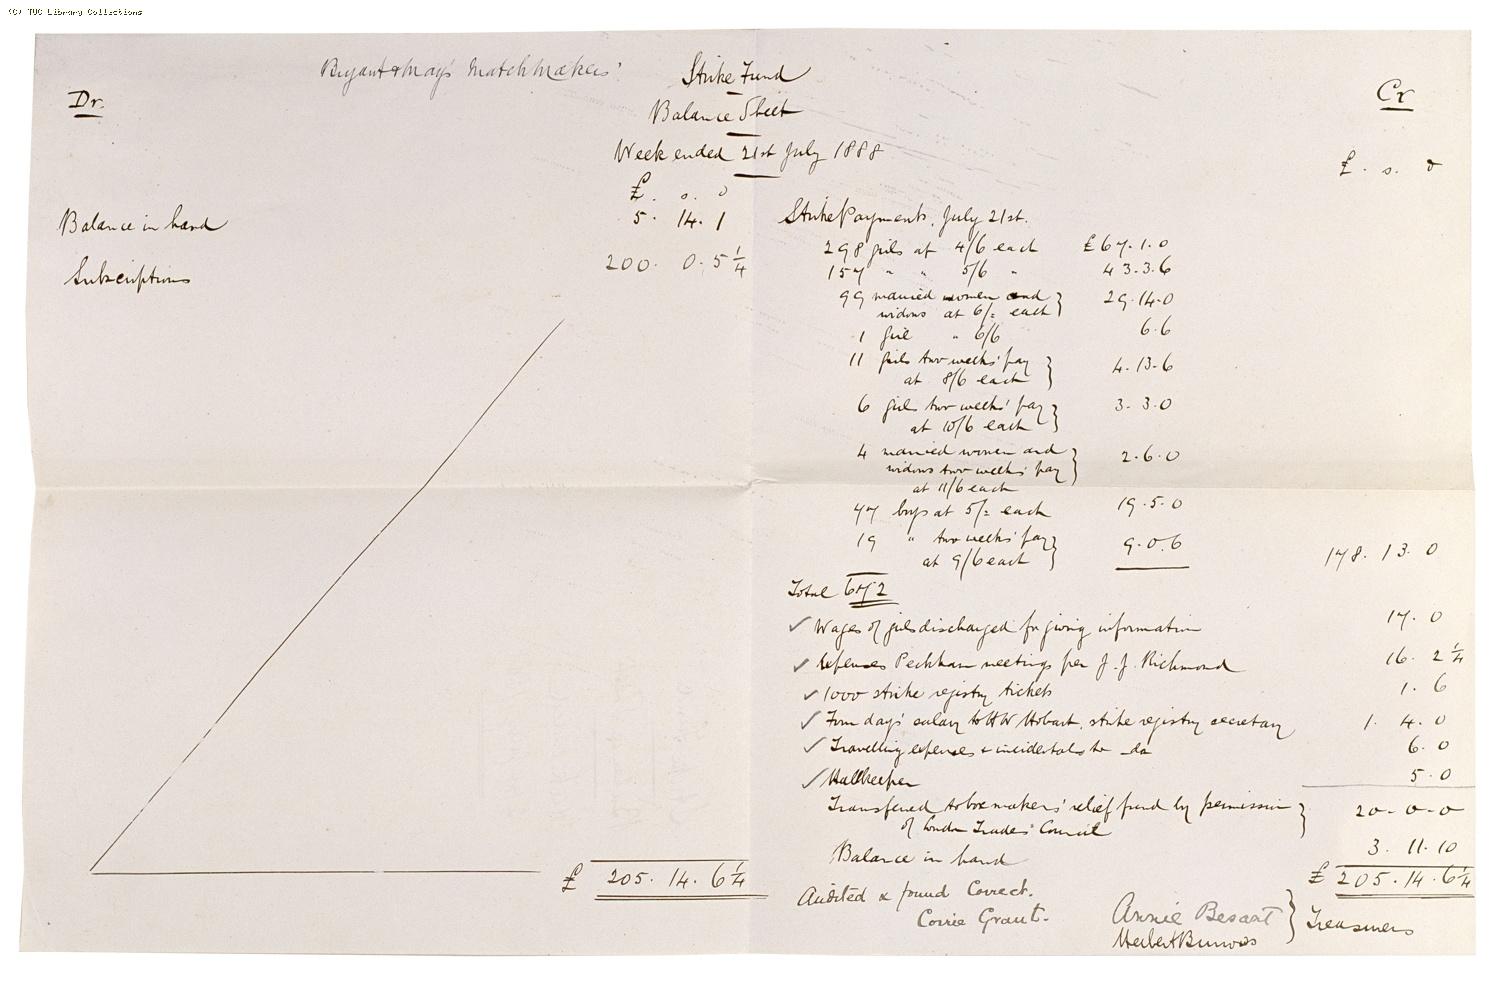 (C) TUC Library Collections
Bryant & May's Matchmakers'
Strike Fund
Dr.
Cr
Balance Sheet
Week ended 21st July 1888
£. s. d
£. s. d
Balance in hand 5. 14. 1
Subscriptions 200. 0. 5 1/4
Strike Payments, July 21st.
298 girls at 4/6 each £67.1.0
157 " " 5/6 " 43.3.6
99 married women and
widows at 6/= each } 29.14.0
1 girl " 6/6 6.6
11 girls two weeks' pay
at 8/6 each } 4.13.6
6 girls two weeks' pay
at 10/6 each } 3.3.0
4 married women and
widows two weeks' pay
at 11/6 each } 2.6.0
77 boys at 5/= each 19.5.0
19 " two weeks' pay
at 9/6 each } 9.0.6
178. 13. 0
Total 672
✓ Wages of girls discharged for giving information 17. 0
✓ Expenses Peckham meetings per J. J. Richmond 16. 2 1/4
✓ 1000 strike registry tickets 1. 6
✓ Four days' salary to HW Hobart, strike registry secretary 1. 4. 0
✓ Travelling expenses & incidentals to do 6. 0
✓ Hallkeeper 5. 0
Transferred to boxmakers' relief fund by permission
of London Trades' Council } 20-0-0
Balance in hand 3. 11. 10
£ 205. 14. 6 1/4
£ 205. 14. 6 1/4
Audited & found Correct.
Corrie Grant.
Annie Besant
Herbert Burrows } Treasurers